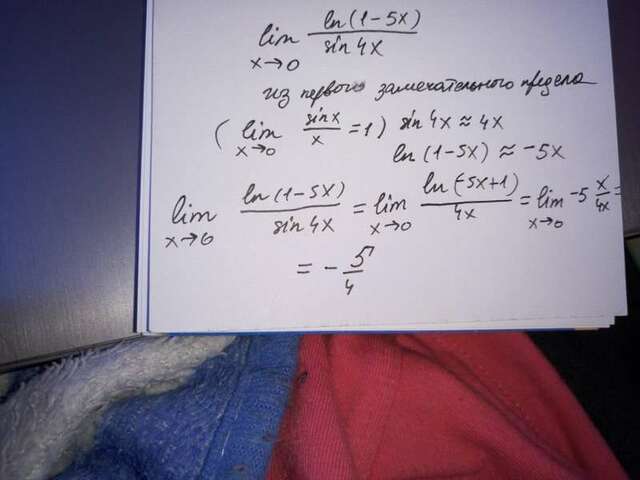 lim x→0 ln(1-5x)/sin 4x
из первого замечательного предела
( lim x→0 sinx/x = 1 ) sin 4x ≈ 4x
ln (1-5x) ≈ -5x
lim x→0 ln(1-5x)/sin 4x = lim x→0 ln(-5x+1)/4x = lim x→0 -5 x/4x =
= - 5/4